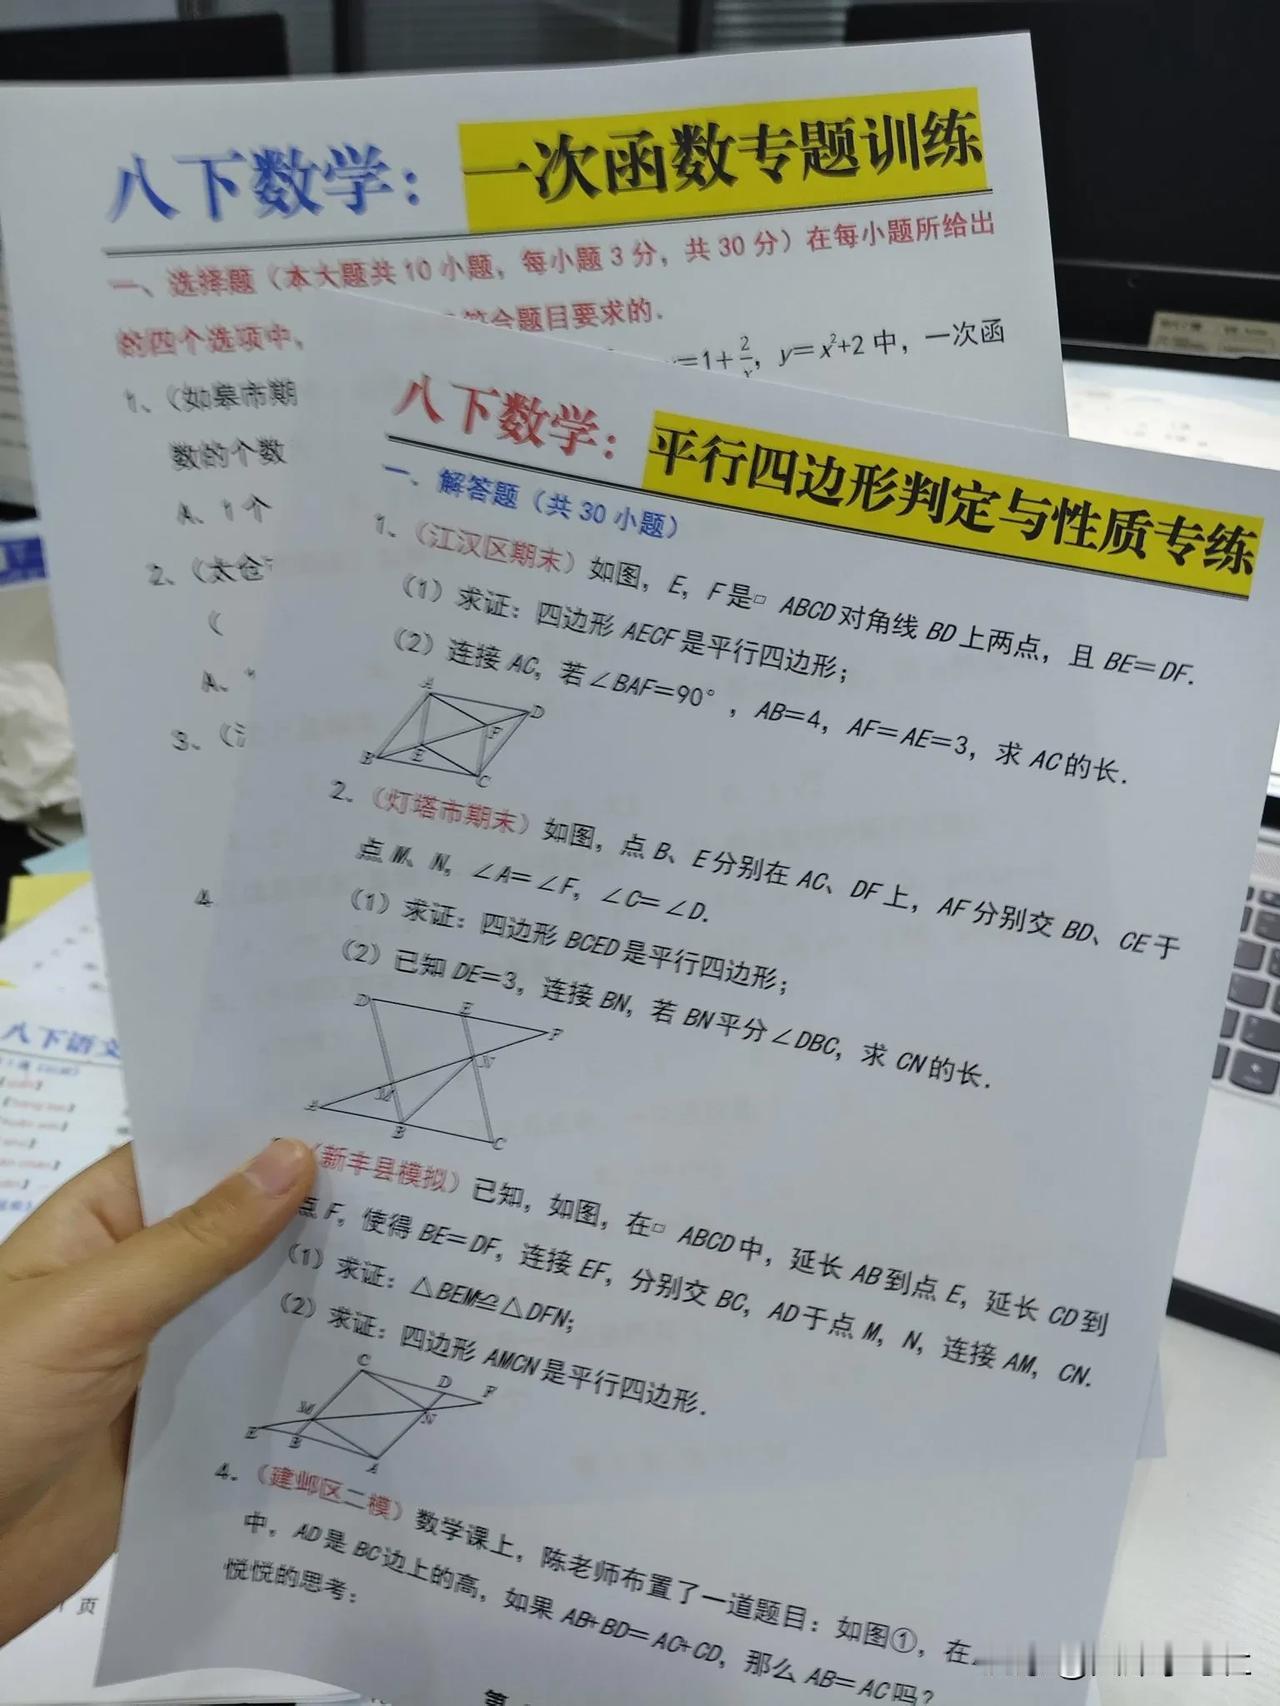 八下数学：一次函数专题训练
一、选择题（本大题共10小题，每小题3分，共30分）在每小题所给出
的四个选项中，符合题目要求的.
1、（如皋市期
=1+2/x，y=x²+2中，一次函
数的个数
A、1个
2、（太仓
（
A、
3、（
4
八下数学：平行四边形判定与性质专练
一、解答题（共30小题）
1、（江汉区期末）如图，E，F是▱ ABCD对角线BD上两点，且BE=DF.
（1）求证：四边形AECF是平行四边形；
（2）连接AC，若∠BAF=90°，AB=4，AF=AE=3，求AC的长.
A
D
F
B
E
C
2、（灯塔市期末）如图，点B、E分别在AC、DF上，AF分别交BD、CE于
点M、N，∠A=∠F，∠C=∠D.
（1）求证：四边形BCED是平行四边形；
（2）已知DE=3，连接BN，若BN平分∠DBC，求CN的长.
D
E
F
N
M
A
B
C
（新丰县模拟）已知，如图，在▱ ABCD中，延长AB到点E，延长CD到
点F，使得BE=DF，连接EF，分别交BC，AD于点M，N，连接AM，CN.
（1）求证：△BEM≌△DFN；
（2）求证：四边形AMCN是平行四边形.
C
D
F
M
N
E
B
A
4.（建邺区二模）数学课上，陈老师布置了一道题目：如图①，在
中，AD是BC边上的高，如果AB+BD=AC+CD，那么AB=AC吗？
悦悦的思考：
第
八下语文
页